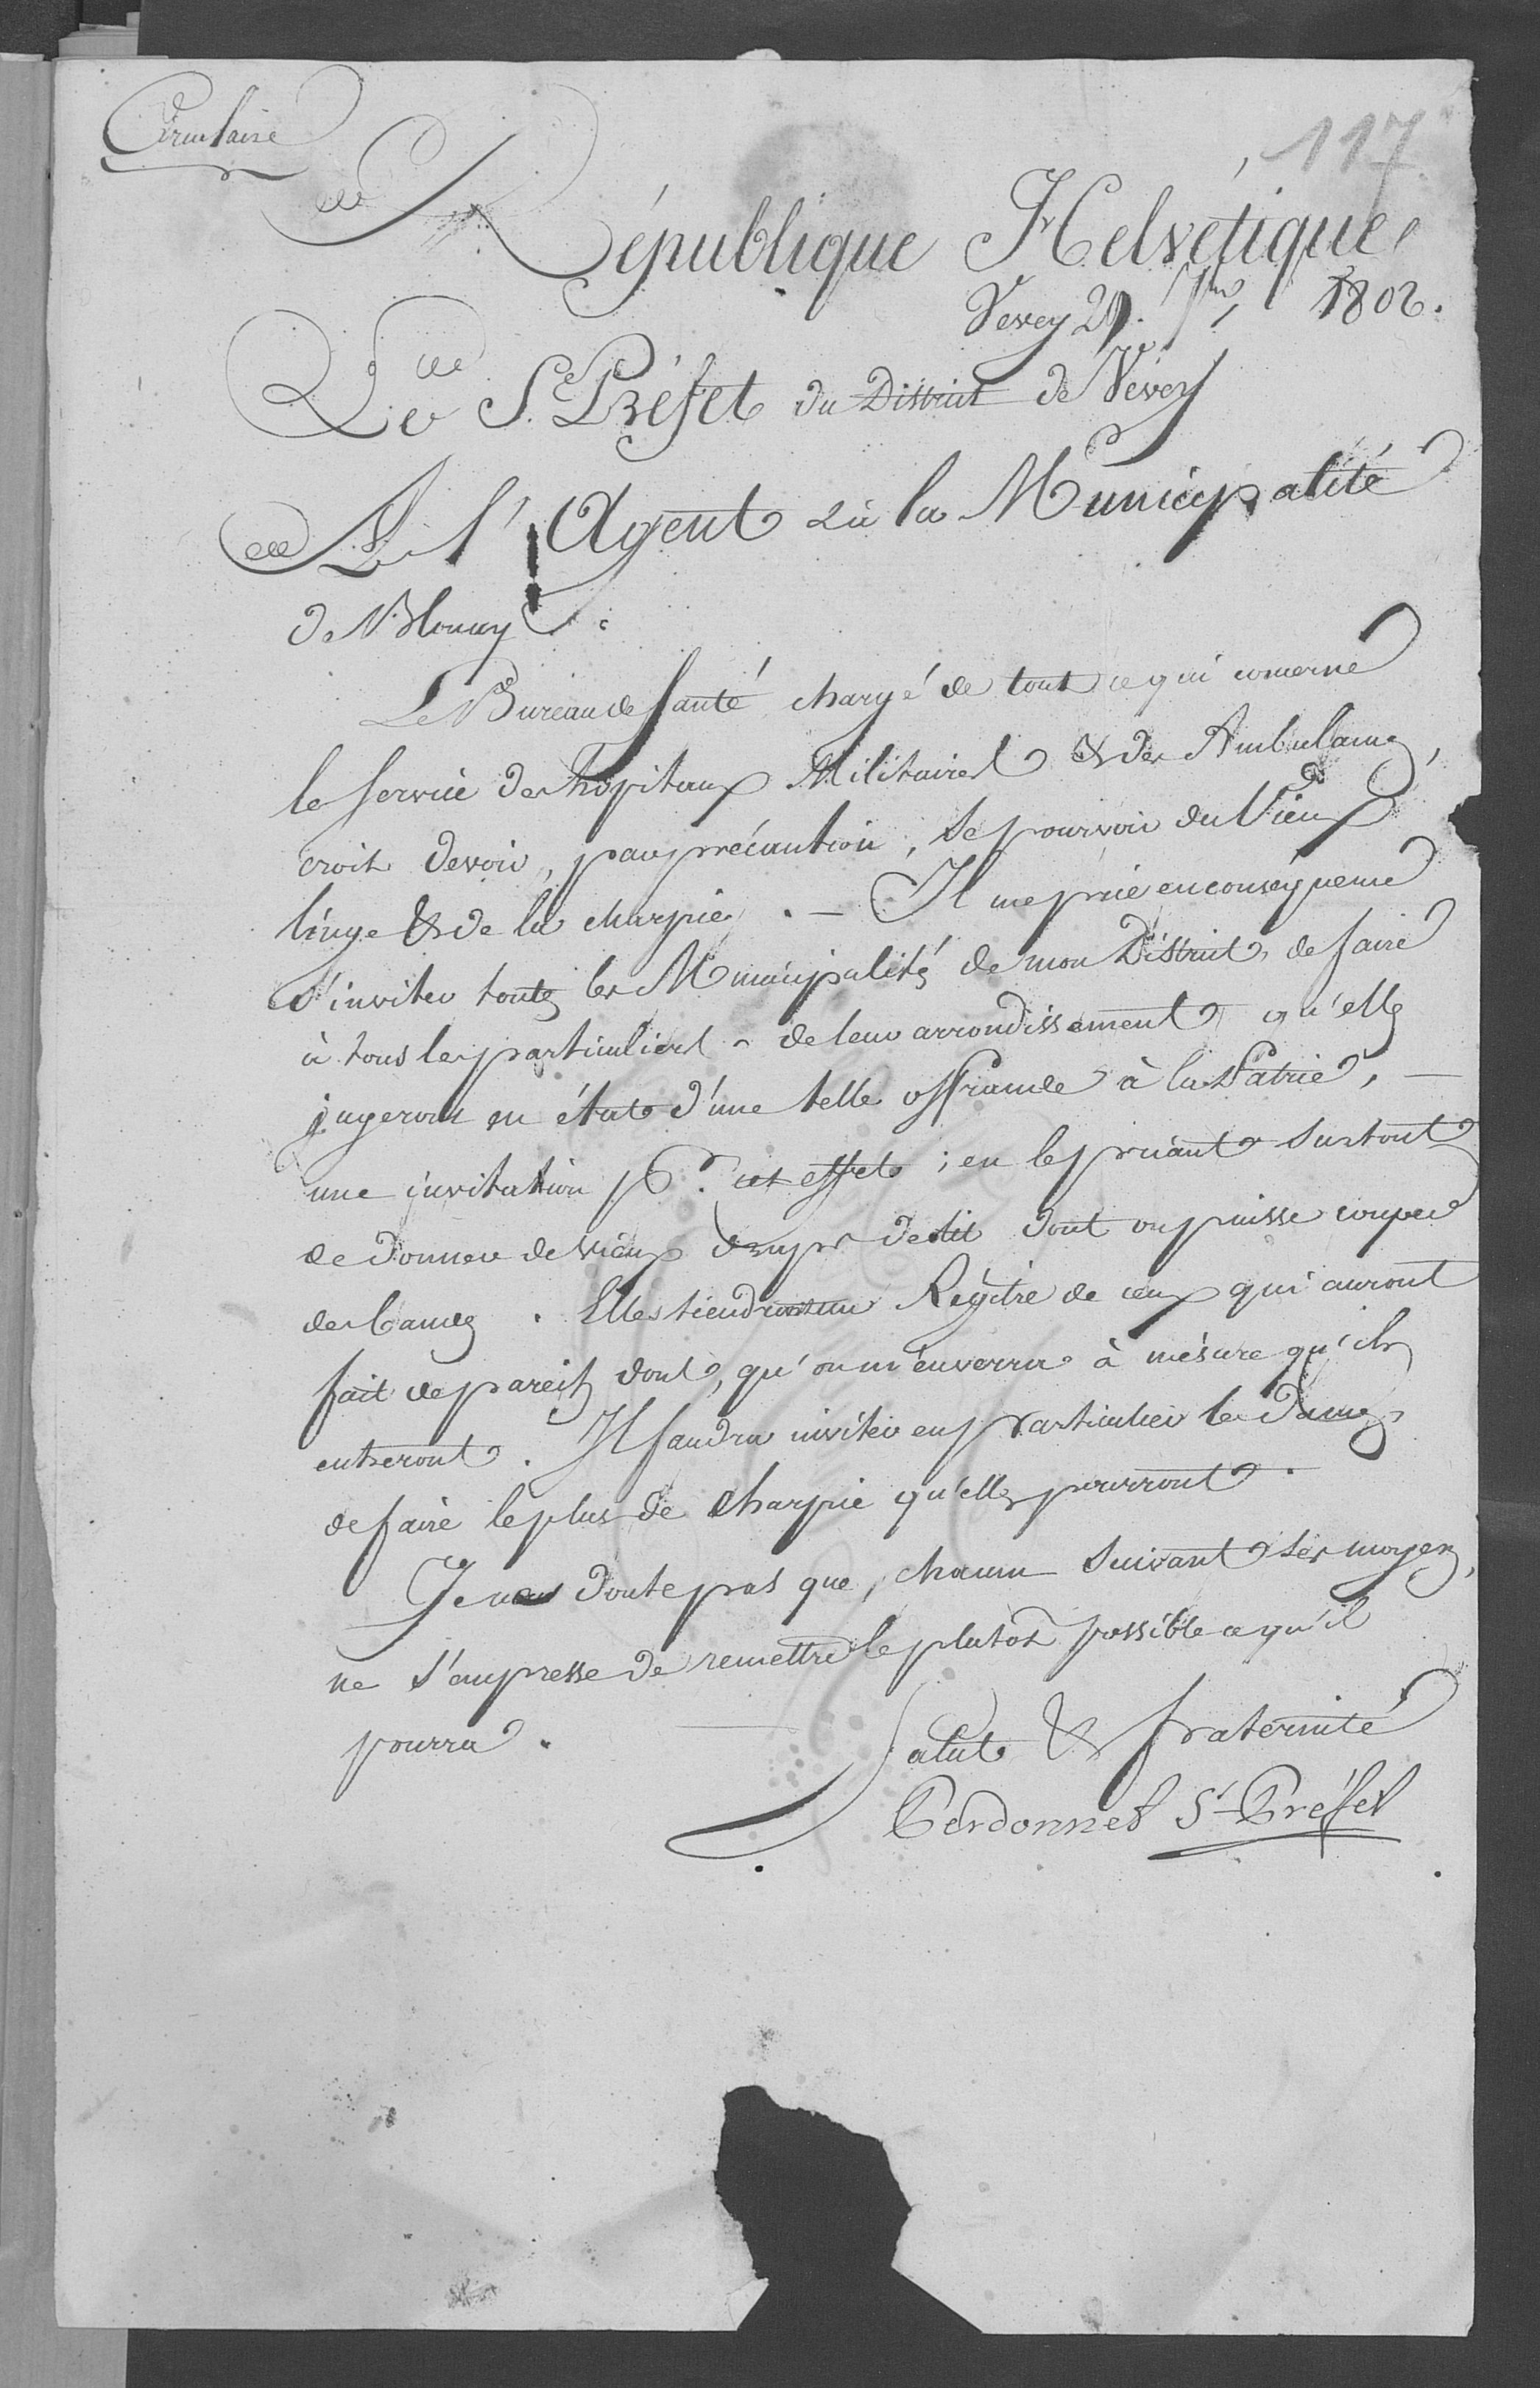 Circulaire
117
République Helvétique
Vevey 29. 7bre 1802.
Le S. Préfet du District de Vevey
A l'Agent & à la Municipalité
de Blonay
Le Bureau de Santé chargé de tout ce qui concerne
le service des hôpitaux Militaires & des Ambulances,
croit devoir, par précaution, se pourvoir du Vieux
linge & de la charpie. — Il me prie en conséquence
d'inviter toutes les Municipalités de mon District, de faire
à tous les particuliers de leur arrondissement qu'elles
jugeront en état d'une telle offrande à la Patrie, —
une invitation pr. cet effet ; en les priant surtout
de donner de vieux draps de lit dont on puisse couper
des bandes. Elles tiendront un Régitre de ceux qui auront
fait de pareils dons, qu'on m'enverra à mésure qu'ils
entreront. Il faudra inviter en particulier les Dames
de faire le plus de Charpie qu'elles pourront.
Je ne doute pas que, chacun suivant ses moyens,
ne s'empresse de remettre le plutot possible ce qu'il
pourra.
Salut & fraternité
Perdonnet S-Préfet